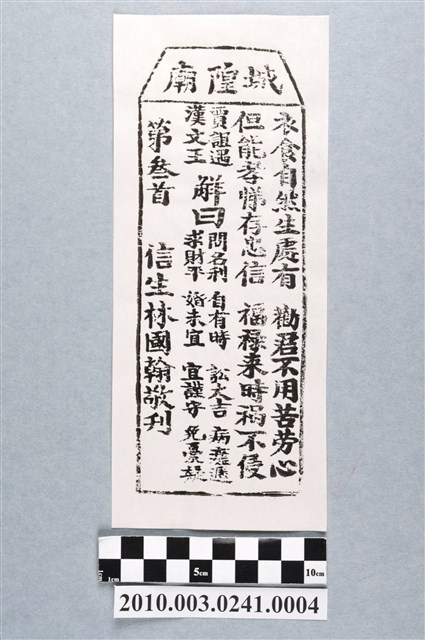 城隍廟
衣食自然生處有 勸君不用苦勞心
但能孝悌存忠信 福祿來時禍不侵
賈誼遇
漢文王
解曰
問名利 自有時 訟太吉 病
求財平 婚未宜 宜謹守 免憂疑
第叁首 信生林國翰敬刋
1cm 5cm 10cm
2010.003.0241.0004